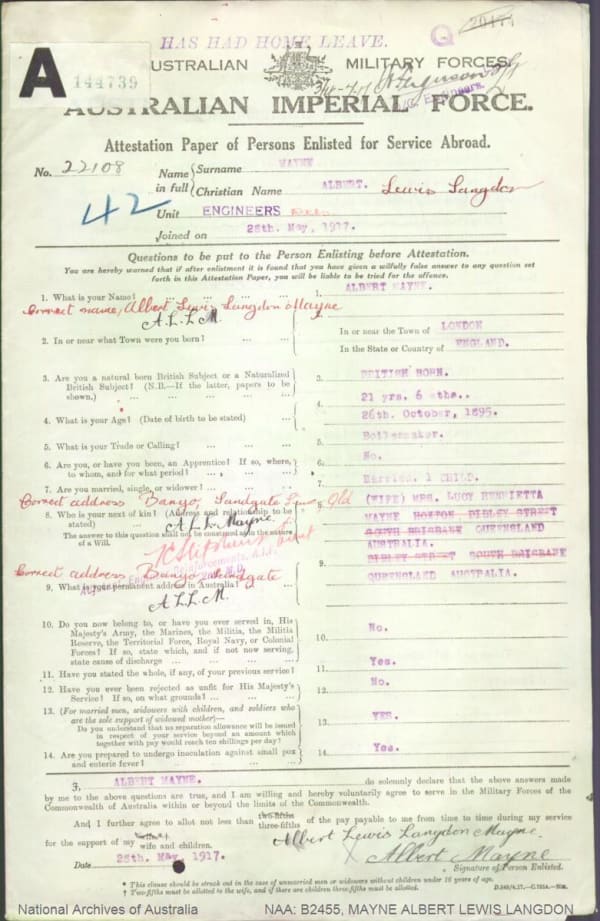 HAS HAD HOME LEAVE.
Q 20474
A 144739
AUSTRALIAN MILITARY FORCES.
Engineers.
AUSTRALIAN IMPERIAL FORCE.
Attestation Paper of Persons Enlisted for Service Abroad.
No. 22108
Name in full
Surname MAYNE
Christian Name ALBERT. Lewis Langdon
42
Unit ENGINEERS
Joined on 28th. May, 1917.
Questions to be put to the Person Enlisting before Attestation.
You are hereby warned that if after enlistment it is found that you have given a wilfully false answer to any question set
forth in this Attestation Paper, you will be liable to be tried for the offence.
1. What is your Name? ... ... ... ... 1. ALBERT MAYNE.
Correct name, Albert Lewis Langdon Mayne
A.L.L.M.
2. In or near what Town were you born? ... ... In or near the Town of LONDON
In the State or Country of ENGLAND.
3. Are you a natural born British Subject or a Naturalized
British Subject? (N.B.—If the latter, papers to be
shown.) ... ... ... ... 3. BRITISH BORN.
21 yrs. 6 mths..
4. What is your Age? (Date of birth to be stated) ... 4. 26th. October, 1895.
5. What is your Trade or Calling? ... ... ... 5. Boilermaker.
6. Are you, or have you been, an Apprentice? If so, where,
to whom, and for what period? ... ... 6. No.
7. Are you married, single, or widower? ... ... 7. Married. 1 CHILD.
Correct address Banyo, Sandgate Qld
8. Who is your next of kin? (Address and relationship to be
stated) ... A.L.L. Mayne.
The answer to this question shall not be construed as in the nature
of a Will.
8. (WIFE) MRS. LUCY HENRIETTA
MAYNE HOXTON DIBLEY STREET
SOUTH BRISBANE QUEENSLAND
AUSTRALIA.
Correct address Banyo Sandgate
9. What is your permanent address in Australia?
A.L.L.M.
9. DIBLEY STREET SOUTH BRISBANE
QUEENSLAND AUSTRALIA.
10. Do you now belong to, or have you ever served in, His
Majesty's Army, the Marines, the Militia, the Militia
Reserve, the Territorial Force, Royal Navy, or Colonial
Forces? If so, state which, and if not now serving,
state cause of discharge ... ... ... ... 10. No.
11. Have you stated the whole, if any, of your previous service? 11. Yes.
12. Have you ever been rejected as unfit for His Majesty's
Service? If so, on what grounds? ... ... ... 12. No.
13. (For married men, widowers with children, and soldiers who
are the sole support of widowed mother)—
Do you understand that no separation allowance will be issued
in respect of your service beyond an amount which
together with pay would reach ten shillings per day? ... 13. YES.
14. Are you prepared to undergo inoculation against small pox
and enteric fever? ... ... ... ... 14. Yes.
I, ALBERT MAYNE. do solemnly declare that the above answers made
by me to the above questions are true, and I am willing and hereby voluntarily agree to serve in the Military Forces of the
Commonwealth of Australia within or beyond the limits of the Commonwealth.
And I further agree to allot not less than two-fifths three-fifths of the pay payable to me from time to time during my service
for the support of my wife wife and children.
Albert Lewis Langdon Mayne.
X Albert Mayne
Date 28th. May, 1917.
Signature of Person Enlisted.
* This clause should be struck out in the case of unmarried men or widowers without children under 16 years of age.
† Two-fifths must be allotted to the wife, and if there are children three-fifths must be allotted.
National Archives of Australia
NAA: B2455, MAYNE ALBERT LEWIS LANGDON